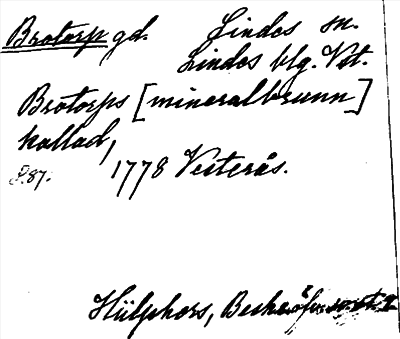 Brotorp gd. Lindes sn.
Lindes blg. Vst.
Brotorps [mineralbrunn]
kallad,
S.87. 1778 Vesterås.
Hülphers,